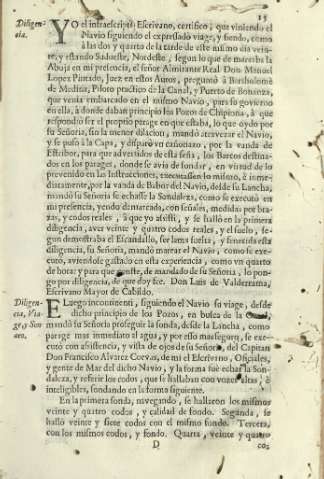 15
Diligencia.
YO el infraescripto Escrivano, certifico, que viniendo el
Navio siguiendo el expressado viage, y siendo, como
à las dos y quarto de la tarde de este mismo dia veinte,
y estando Sudueste, Nordeste, segun lo que demarcaba la
Aguja en mi presencia, el señor Almirante Real Don Manuel
Lopez Pintado, Juez en estos Autos, preguntò à Bartholomè
de Medina, Piloto practico de la Canal, y Puerto de Bonanza,
que venia embarcado en el mismo Navio, para su govierno
en ella, à donde daban principio los Pozos de Chipiona, à que
respondiò ser el proprio parage en que estaba, lo que oydo por
su Señoria, sin la menor dilacion, mandò atravesar el Navio,
y se puso à la Capa, y disparò un cañonazo, por la vanda de
Estribor, para que advertidos de esta seña, los Barcos destinados
en los parages, donde se avia de sondar, en virtud de lo
prevenido en las Instrucciones, executassen lo mismo, è inmediatamente,
por la vanda de Babor del Navio, desde su Lancha,
mandò su Señoria se echasse la Sondaleza, como se executò en
mi presencia, yendo demarcado, con señales, medidas por brazas,
y codos reales, à que yo assisti, y se hallò en la primera
diligencia, aver veinte y quatro codos reales, y el suelo, segun
demostraba el Escandallo, ser lama suelta, y fenecida esta
diligencia, su Señoria, mandò marear el Navio, como se executò,
aviendose gastado en esta experiencia, como un quarto
de hora: y para que conste, de mandado de su Señoria, lo pongo
por diligencia, de que doy fee. Don Luis de Valderrama,
Escrivano Mayor de Cabildo.
Diligencia, Viage,
y Sondeo.
E Luego incontinenti, siguiendo el Navio su viage, desde
dicho principio de los Pozos, en busca de la Canal,
mandò su Señoria proseguir la sonda, desde la Lancha, como
parage mas inmediato al agua, y por esso mas seguro, se executò
con assistencia, y vista de ojos de su Señoria, del Capitan
Don Francisco Alvarez Cuevas, de mi el Escrivano, Oficiales,
y gente de Mar del dicho Navio, y la forma fuè echar la Sondaleza,
y referir los codos, que se hallaban con vozes altas, è
inteligibles, sondando en la forma siguiente.
En la primera sonda, navegando, se hallaron los mismos
veinte y quatro codos, y calidad de fondo. Segunda, se
hallò veinte y siete codos con el mismo fondo. Tercera,
con los mismos codos, y fondo. Quarta, veinte y quatro
D
co-